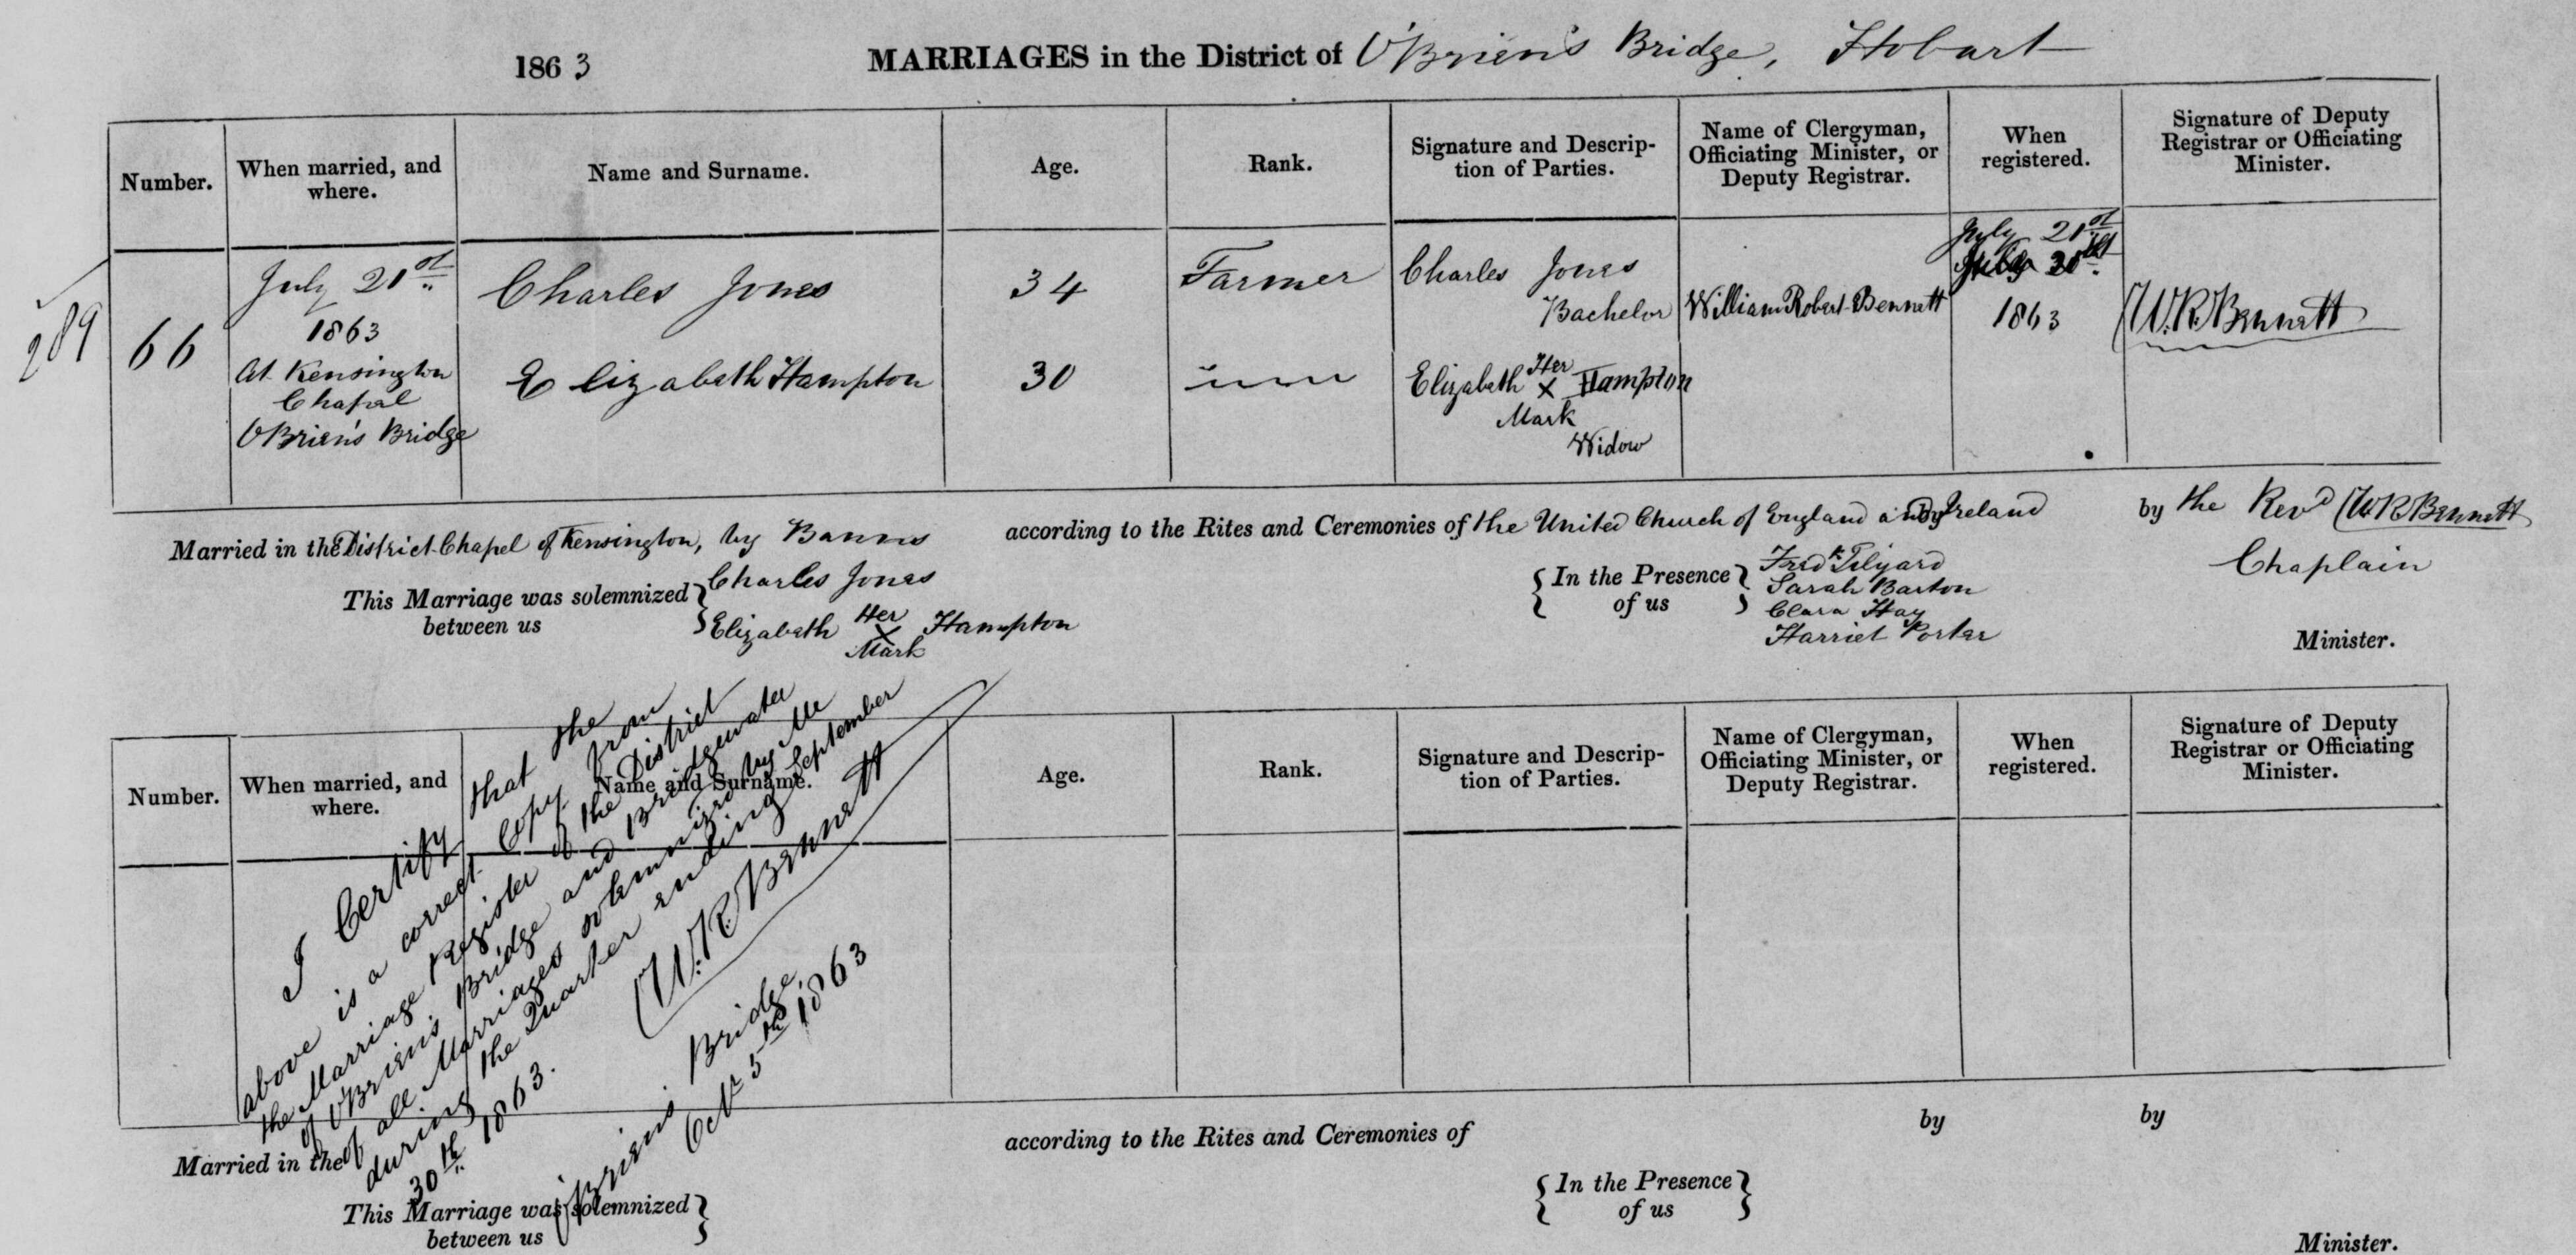 1863 MARRIAGES in the District of O'Brien's Bridge, Hobart
Number.
When married, and
where.
Name and Surname.
Age.
Rank.
Signature and Descrip-
tion of Parties.
Name of Clergyman,
Officiating Minister, or
Deputy Registrar.
When
registered.
Signature of Deputy
Registrar or Officiating
Minister.
289
66
July 21st
1863
At Kensington
Chapel
O'Brien's Bridge
Charles Jones
34
Farmer
Charles Jones
Bachelor
William Robert Bennett
July 21st
1863
W. R. Bennett
Elizabeth Hampton
30
Elizabeth Her X Hampton
Mark
Widow
Married in the District Chapel of Kensington, by Banns according to the Rites and Ceremonies of the United Church of England and Ireland by by the Revd W R Bennett
Chaplain
This Marriage was solemnized
between us
Charles Jones
Elizabeth Her X Hampton
Mark
In the Presence
of us
Fredk Tilyard
Sarah Barton
Clara Hay
Harriet Porter
Minister.
Number.
When married, and
where.
Name and Surname.
Age.
Rank.
Signature and Descrip-
tion of Parties.
Name of Clergyman,
Officiating Minister, or
Deputy Registrar.
When
registered.
Signature of Deputy
Registrar or Officiating
Minister.
I Certify that the
above is a correct Copy from
the Marriage Register of the District
of O'Brien's Bridge and Bridgewater
of all Marriages solemnized by Me
during the Quarter ending September
30th 1863.
W. R. Bennett
O'Briens Bridge,
Octr 5th 1863
Married in the according to the Rites and Ceremonies of by by
This Marriage was solemnized
between us
In the Presence
of us
Minister.